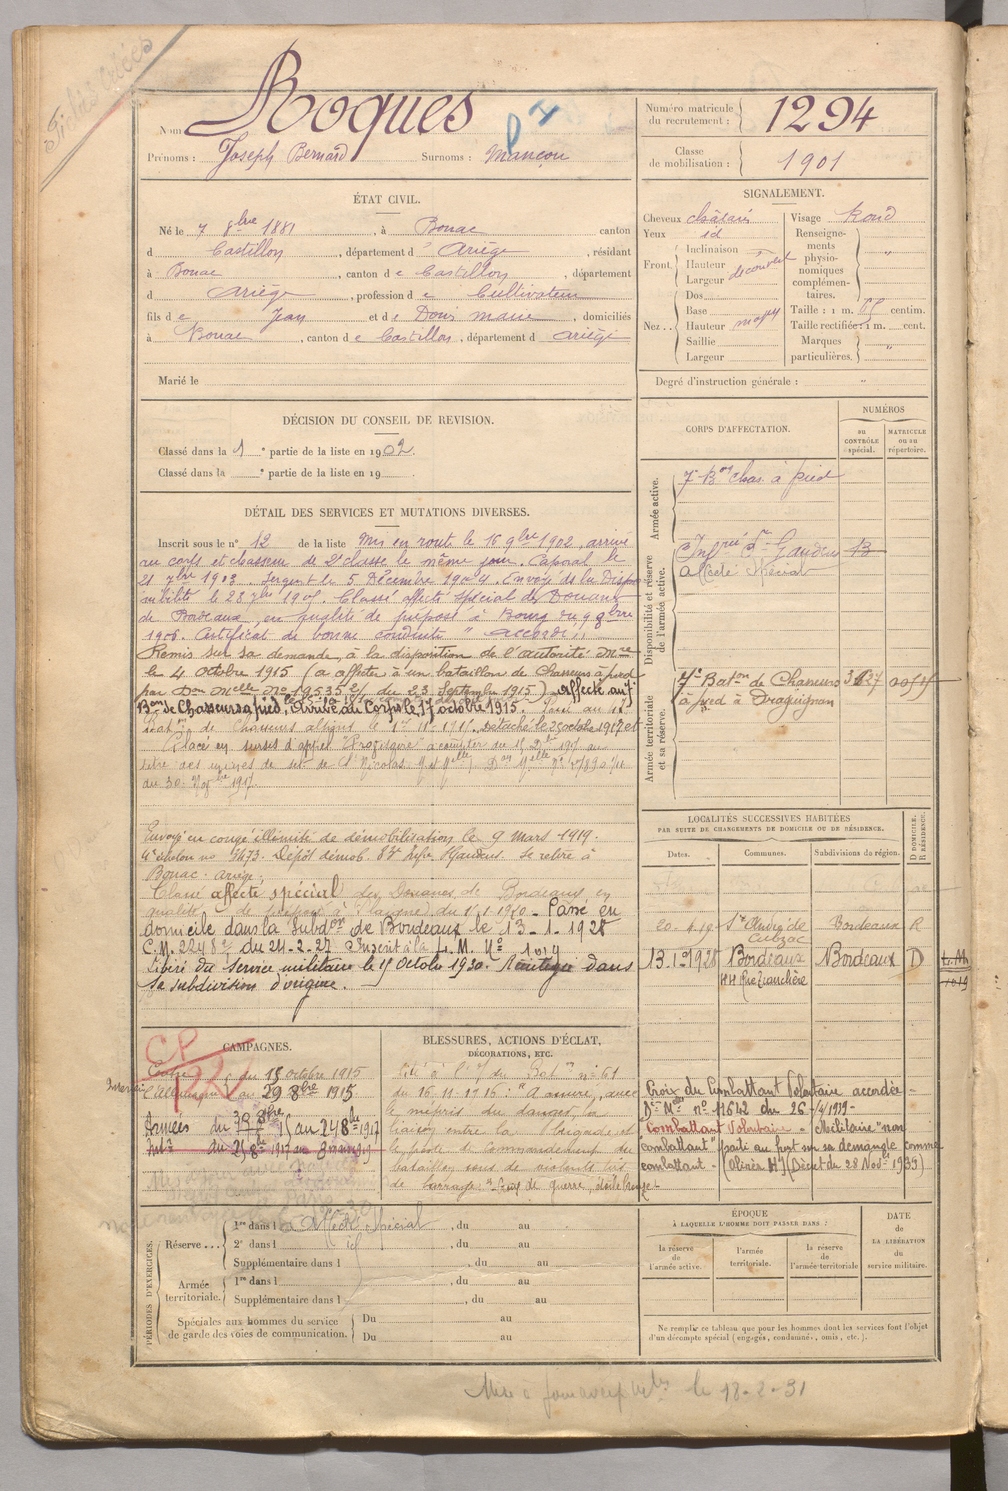 Nom : Roques
Prénoms : Joseph Bernard Surnoms : Mançou
Numéro matricule du recrutement : 1294
Classe de mobilisation : 1901
ÉTAT CIVIL.
Né le 7 8bre 1881, à Bonac canton
d Castillon, département d' Ariège, résidant
à Bonac, canton de Castillon, département
d Ariège, profession de Cultivateur
fils de Jean et de Doris Marie, domiciliés
à Bonac, canton de Castillon, département d Ariège
Marié le
SIGNALEMENT.
Cheveux châtains
Yeux id
Front. Inclinaison
Hauteur découvert
Largeur
Nez .. Dos
Base
Hauteur moyen
Saillie
Largeur
Visage Rond
Renseignements physionomiques complémentaires. "
Taille : 1 m. 55 centim.
Taille rectifiée : 1 m. cent.
Marques particulières. "
Degré d'instruction générale : "
DÉCISION DU CONSEIL DE REVISION.
Classé dans la 1e partie de la liste en 1902.
Classé dans la e partie de la liste en 19
CORPS D'AFFECTATION.
NUMÉROS
au CONTRÔLE spécial.
MATRICULE ou au répertoire.
Armée active.
7e Bon chas. à pied
Disponibilité et réserve de l'armée active.
affecté Spécial
Armée territoriale et sa réserve.
7e Baton de Chasseurs
à pied à Draguignan
DÉTAIL DES SERVICES ET MUTATIONS DIVERSES.
Inscrit sous le n° 12 de la liste Mis en route le 16 9bre 1902, arrivé
au corps et chasseur de 2e classe le même jour. Caporal le
21 7bre 1903. Sergent le 5 Décembre 1904. Envoyé de la Dispo
nibilité le 23 7bre 1905. Classé affecté spécial des Douanes
de Bordeaux, en qualité de préposé à Bourg du 9 8bre
1906. Certificat de bonne conduite "accordé".
Remis sur sa demande, à la disposition de l'autorité Mre
le 4 octobre 1915 (à affecter à un bataillon de Chasseurs à pied
par Don Melle No 19535 2/1 du 23 Septembre 1915) affecté au 7e
Bon de Chasseurs à pied, Arrivé au Corps le 17 octobre 1915. Passé au 12e
Baton de Chasseurs alpins le 1er 11 1915. Détaché le 25 octobre 1917 et
Placé en sursis d'appel
du 30 Nobre 1917.
Envoyé en congé illimité de démobilisation le 9 Mars 1919.
4e échelon no 9473. Dépôt démob. Se retire à
Bonac. Ariège.
Classé affecté spécial des Douanes de Bordeaux, en
qualité de préposé à du 1-1-1920 - Passé en
domicile dans la Subdon de Bordeaux le 13-1-1928
C.M. 22487 du 24-2-27 Inscrit à la L.M. No 1019
Libéré du service militaire le 15 octobre 1930. Réintégré dans
sa subdivision d'origine.
LOCALITÉS SUCCESSIVES HABITÉES
PAR SUITE DE CHANGEMENTS DE DOMICILE OU DE RÉSIDENCE.
Dates. Communes. Subdivisions de région. D DOMICILE. R RÉSIDENCE.
20-4-19 St André de Cubzac Bordeaux R
13-1-1928 Bordeaux Bordeaux D
L.M.
1019
CAMPAGNES.
CP
Contre du 15 octobre 1915
l'Allemagne au 29 8bre 1915
Armées du 30 8bre 15 au 24 8bre 1917
Intre du 25 8bre 1917 au 8 mars 1919
BLESSURES, ACTIONS D'ÉCLAT,
DÉCORATIONS, ETC.
Cité à l'O/ du Baton no 61
du 16.11.1916 : "A assuré, avec
le mépris du danger, la
liaison entre la brigade et
le poste de commandement du
bataillon sous de violents tirs
de barrage." Croix de guerre, étoile bronze.
Croix du Combattant Volontaire accordée -
Don Mle no 11642 du 26-/4/1939-
Combattant Volontaire - Militaire "non
combattant" parti au front sur sa demande comme
combattant - (Décret du 28 Novbre 1935)
PÉRIODES D'EXERCICES.
Réserve ... 1re dans l a affecté Spécial, du au
2e dans l id, du au
Supplémentaire dans l, du au
Armée territoriale. 1re dans l, du au
Supplémentaire dans l, du au
Spéciales aux hommes du service de garde des voies de communication. Du au
Du au
ÉPOQUE
À LAQUELLE L'HOMME DOIT PASSER DANS :
la réserve de l'armée active. l'armée territoriale. la réserve de l'armée territoriale.
DATE de LA LIBÉRATION du service militaire.
Ne remplir ce tableau que pour les hommes dont les services font l'objet
d'un décompte spécial (engagés, condamnés, omis, etc.).
le 18-2-31